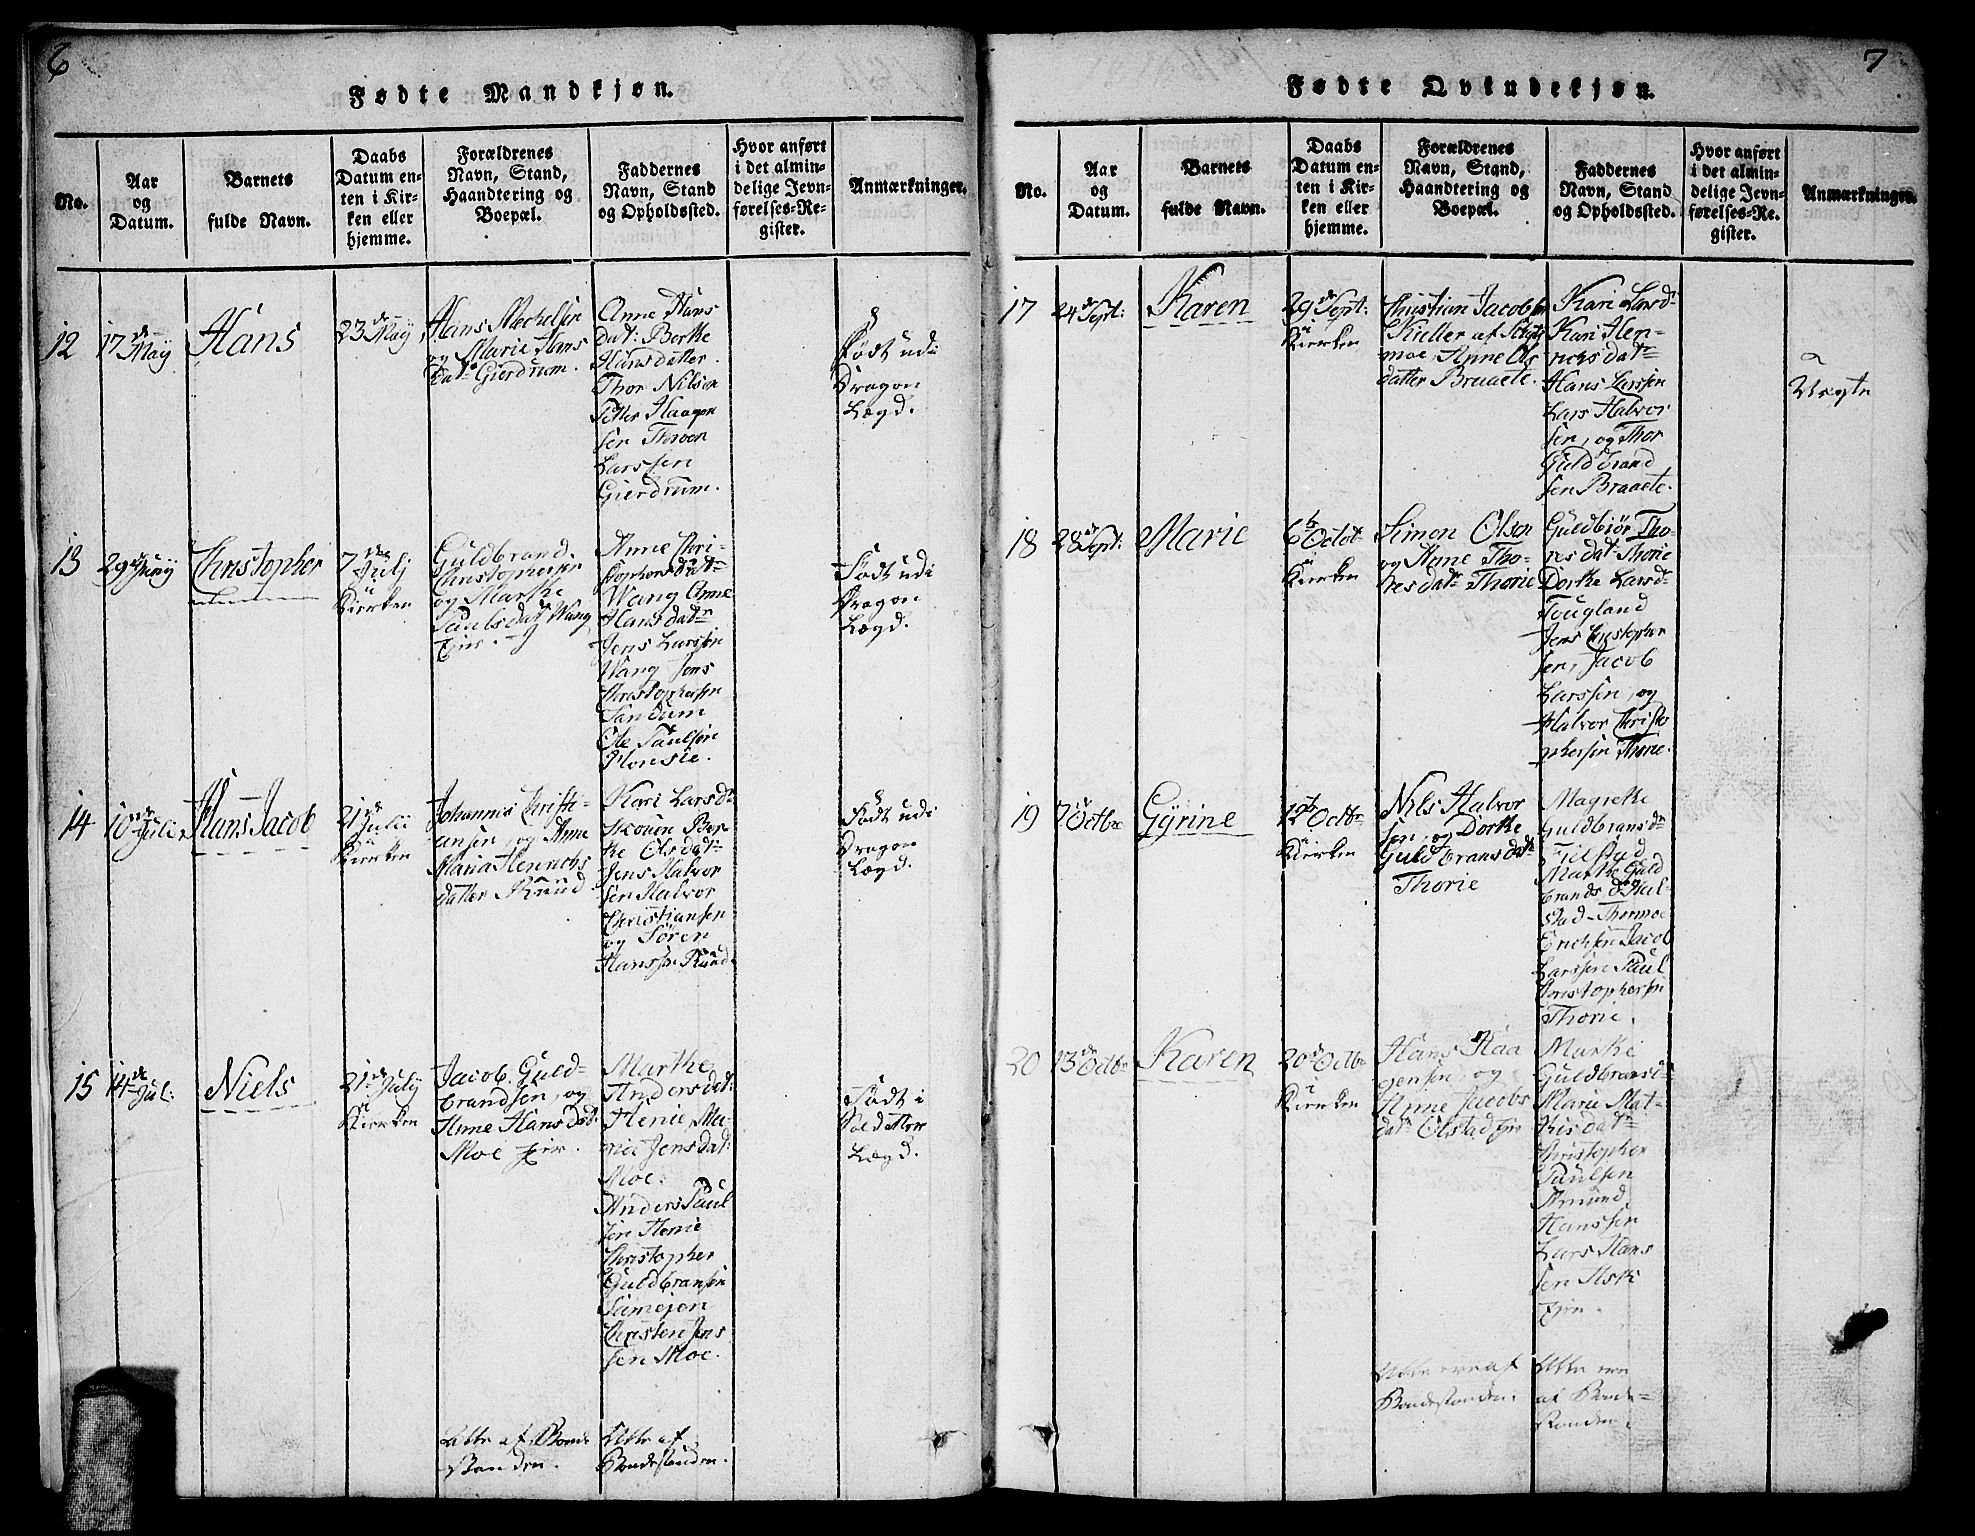 6
Fødte Mandkjøn.
No.
Aar
og
Datum.
Barnets
fulde Navn.
Daabs
Datum en-
ten i Kir-
ken eller
hjemme.
Forældrenes
Navn, Stand,
Haandtering og
Boepæl.
Faddernes
Navn, Stand
og Opholdssted.
Hvor anført
i det almin-
delige Jevn-
førelses-Re-
gister.
Anmærkninger.
12
17de
May
Hans
23de May
Hans
og Marie Hans
Datr Gierdrum.
Anne Hans
dat: Borke
Hansdatter.
Thor Nilson
Petter Haagen
sen
Larssen
Gierdrum.
Født udi
Dragon
Lægd.
13
29de Juny
Christopher
7de
Julj
i
Kierken
Guldbrand
Christophersen
og Marthe
Paulsdatr Wang
Eier.
Anne Chri-
stophersdatr
Wang Anne
Hansdatr
Jens Larssen
Wang Jens
Christophersen
Sandum
Ole Paulsen
Født udi
Dragon
Lægd.
14
10de Julii
Hans Jacob
21de
Julii
i
Kierken
Johannis Christi-
ansen, og Anne
Maria Henrichs
datter Ruud.
Kari Larsdr
Bor-
ke Olsdatr
Jens Halvor
sen Halvor
Christiansen
og Søren
Hanssen Ruud.
Født udi
Dragon
Lægd.
15
14de Jul:
Niels
21de July
i
Kierken
Jacob Guld-
brandsen, og
Anne Hansdat:
Moe Eier.
Marthe
Andersdat:
Henie, Ma-
rie Jensdat:
Moe.
Anders Paul
sen Henie
Christopher
Guldbransen
Christen Jens
sen Moe.
Født i
Soldatter
Lægd.
Alle af Bonde
standen.
Alle af
Bondestanden.
7
Fødte Qvindekjøn.
No.
Aar
og
Datum.
Barnets
fulde Navn.
Daabs
Datum en-
ten i Kir-
ken eller
hjemme.
Forældrenes
Navn, Stand,
Haandtering og
Boepæl.
Faddernes
Navn, Stand
og Opholdssted.
Hvor anført
i det almin-
delige Jevn-
førelses-Re-
gister.
Anmærkninger.
17
24de Sept:
Karen
29de Sept:
i
Kierken
Christian Jacobsen
moe, Anne Ols
datter Braaete.
Kari Larsdr
Kari Hen-
richsdatr
Hans Larssen
Lars Halvor
sen, og Thor
Guldbrand
sen Braaete.
Uægte
18
28de Sept:
Marie
6te Octob
i
Kierken
Simon Olsen
og Anne Tho-
resdatr Thorie
Guldbiør Tho-
resdat Thorie
Dorthe Larsd
Tougland
Jens Christopher
sen, Jacob
Larssen, og
Halvor Christo
phersen Thorie.
19
7de Octbr
Gyrine
12te Octbr
i
Kierken
Nils Halvor
sen, og Dorthe
Guldbransdatr
Thorie
Magrethe
Guldbransdr
Fielstad
Marthe Guld
brandsdr
stad
Erichsen Jacob
Larssen Paul
Christophersen
Thorie.
20
13de Octbr
Karen
20de Octbr
i
Kierken
Hans Haa
gensen, og
Anne Jacobs
datr Olstad Eier
Marthe
Guldbransdr
Marie Mat-
hisdatr
Christopher
Paulsen
Amund
Hanssen
Lars Hans
sen Ask
Eier.
Alle ere af
Bondestanden.
Alle ere
af Bonde-
standen.